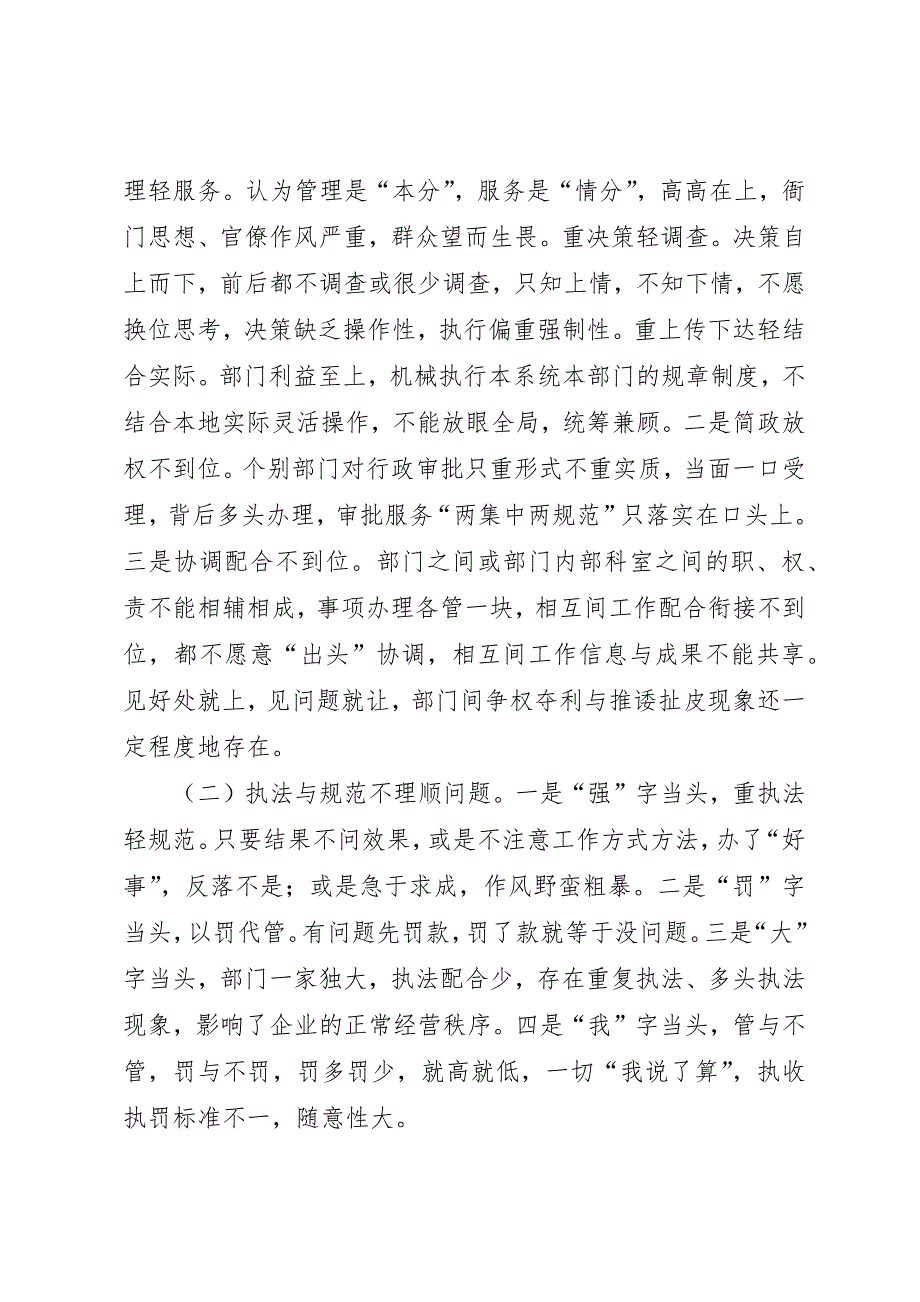 理轻服务。认为管理是“本分”，服务是“情分”，高高在上，衙
门思想、官僚作风严重，群众望而生畏。重决策轻调查。决策自
上而下，前后都不调查或很少调查，只知上情，不知下情，不愿
换位思考，决策缺乏操作性，执行偏重强制性。重上传下达轻结
合实际。部门利益至上，机械执行本系统本部门的规章制度，不
结合本地实际灵活操作，不能放眼全局，统筹兼顾。二是简政放
权不到位。个别部门对行政审批只重形式不重实质，当面一口受
理，背后多头办理，审批服务“两集中两规范”只落实在口头上。
三是协调配合不到位。部门之间或部门内部科室之间的职、权、
责不能相辅相成，事项办理各管一块，相互间工作配合衔接不到
位，都不愿意“出头”协调，相互间工作信息与成果不能共享。
见好处就上，见问题就让，部门间争权夺利与推诿扯皮现象还一
定程度地存在。
（二）执法与规范不理顺问题。一是“强”字当头，重执法
轻规范。只要结果不问效果，或是不注意工作方式方法，办了“好
事”，反落不是；或是急于求成，作风野蛮粗暴。二是“罚”字
当头，以罚代管。有问题先罚款，罚了款就等于没问题。三是“大”
字当头，部门一家独大，执法配合少，存在重复执法、多头执法
现象，影响了企业的正常经营秩序。四是“我”字当头，管与不
管，罚与不罚，罚多罚少，就高就低，一切“我说了算”，执收
执罚标准不一，随意性大。